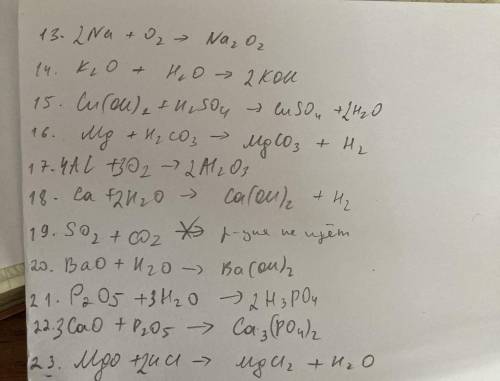 13. 2Na + O2 → Na2O2
14. K2O + H2O → 2KOH
15. Cu(OH)2 + H2SO4 → CuSO4 + 2H2O
16. Mg + H2CO3 → MgCO3 + H2
17. 4Al + 3O2 → 2Al2O3
18. Ca + 2H2O → Ca(OH)2 + H2
19. SO2 + CO2 ↛ р-ция не идёт
20. BaO + H2O → Ba(OH)2
21. P2O5 + 3H2O → 2H3PO4
22. 3CaO + P2O5 → Ca3(PO4)2
23. MgO + 2HCl → MgCl2 + H2O